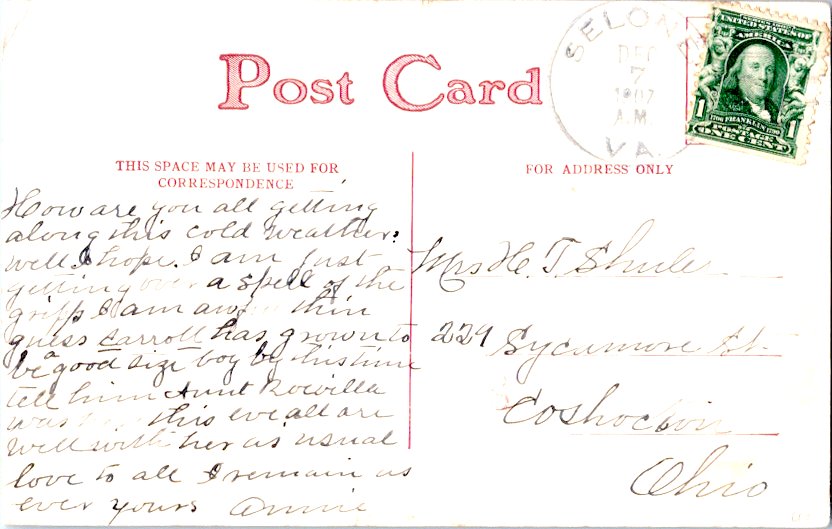 Post Card
SELOMA
DEC
7
1907
A.M.
VA.
UNITED STATES OF
AMERICA
1706 FRANKLIN 1790
1 POSTAGE 1
ONE CENT
THIS SPACE MAY BE USED FOR
CORRESPONDENCE
FOR ADDRESS ONLY
How are you all getting
along this cold weather?
well I hope. I am just
getting over a spell of the
gripp I am awful thin
guess Carroll has grown to
be a good size boy by this time
tell him Aunt
was this eve all are
well with her as usual
love to all I remain as
ever yours Annie
Mrs H. T Shule
229 Sycamore St.
Coshocton
Ohio